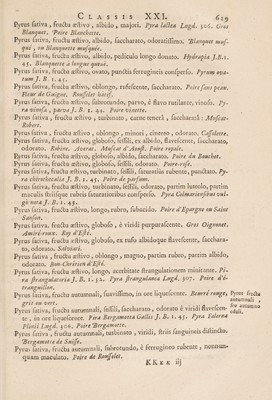 CLASSIS XXI. 629
Pyrus sativa, fructu æstivo, albido, majori. Pyra lactea Lugd. 306. Gros
Blanquet. Poire Blanchette.
Pyrus sativa, fructu æstivo, albido, saccharato, odoratissimo. Blanquet mus-
qué, ou Blanquette musquée.
Pyrus sativa, fructu æstivo, albido, pediculo longo donato. Hydrapia J. B. 1.
45. Blanquette à longue queuë.
Pyrus sativa, fructu æstivo, ovato, punctis ferrugineis consperso. Pyrum ova-
tum J. B. 1.
Pyrus sativa, fructu æstivo, oblongo, rufescente, saccharato. Poire sans peau.
Fleur de Guigne. Rousselet hâtif.
Pyrus sativa, fructu æstivo, subrotundo, parvo, è flavo rutilante, vinoso. Py-
ra vinosa, parva J. B. 1. 44. Poire vinette.
Pyrus sativa, fructu æstivo, turbinato, carne tenerâ, saccharatâ. Muscat-
Robert.
Pyrus sativa, fructu æstivo, oblongo, minori, cinereo, odorato. Cassolette.
Pyrus sativa, fructu æstivo, globoso, sessili, ex albido, flavescente, saccharato,
odorato. Robine. Averat. Muscat d'Aoust. Poire royale.
Pyrus sativa, fructu æstivo, globoso, albido, saccharato. Poire du Bouchet.
Pyrus sativa, fructu æstivo, globoso, sessili, odorato. Poire-rose.
Pyrus sativa, fructu æstivo, turbinato, sessili, saturatiùs rubente, punctato. Py-
ra chirotecalia J. B. 1. 45. Poire de parfum.
Pyrus sativa, fructu æstivo, turbinato, sessili, odorato, partim luteolo, partim
maculis striisque rubris saturatioribus consperso. Pyra Colmariensibus vul-
gò nota J. B. 1. 45.
Pyrus sativa, fructu æstivo, longo, rubro, subacido. Poire d'Epargne ou Saint
Sanson.
Pyrus sativa, fructu æstivo, globoso, è viridi purpurascente. Gros Oignonet.
Amiré roux. Roy d'Esté.
Pyrus sativa, fructu æstivo, globoso, ex ruso albidoque flavescente, saccharato,
odorato. Salviati.
Pyrus sativa, fructu æstivo, oblongo, magno, partim rubro, partim albido,
odorato. Bon-Chrêtien d'Esté.
Pyrus sativa, fructu æstivo, longo, acerbitate strangulationem minitante. Py-
ra strangulatoria J. B. 1. 52. Pyra strangulanea Lugd. 307. Poire d'é-
tranguillon.
Pyrus sativa, fructu autumnali, suavissimo, in ore liquescente. Beurré rouge,
gris ou vert.
Pyrus fructu
autumnali
Pyrus sativa, fructu autumnali, sessili, saccharato, odorato è viridi flavescen-
te, in ore liquescente. Pira Bergamotta Gallis J. B. 1. 45. Pyra Falerna
Plinii Lugd. 306. Poire Bergamotte.
Pyrus sativa, fructu autumnali, turbinato, viridi, striis sanguineis distincto.
Bergamotte de Suisse.
Pyrus sativa, fructu autumnali, subrotundo, è ferrugineo rubente, nonnun-
quam maculato. Poire de Rousselet.
KKkk iij